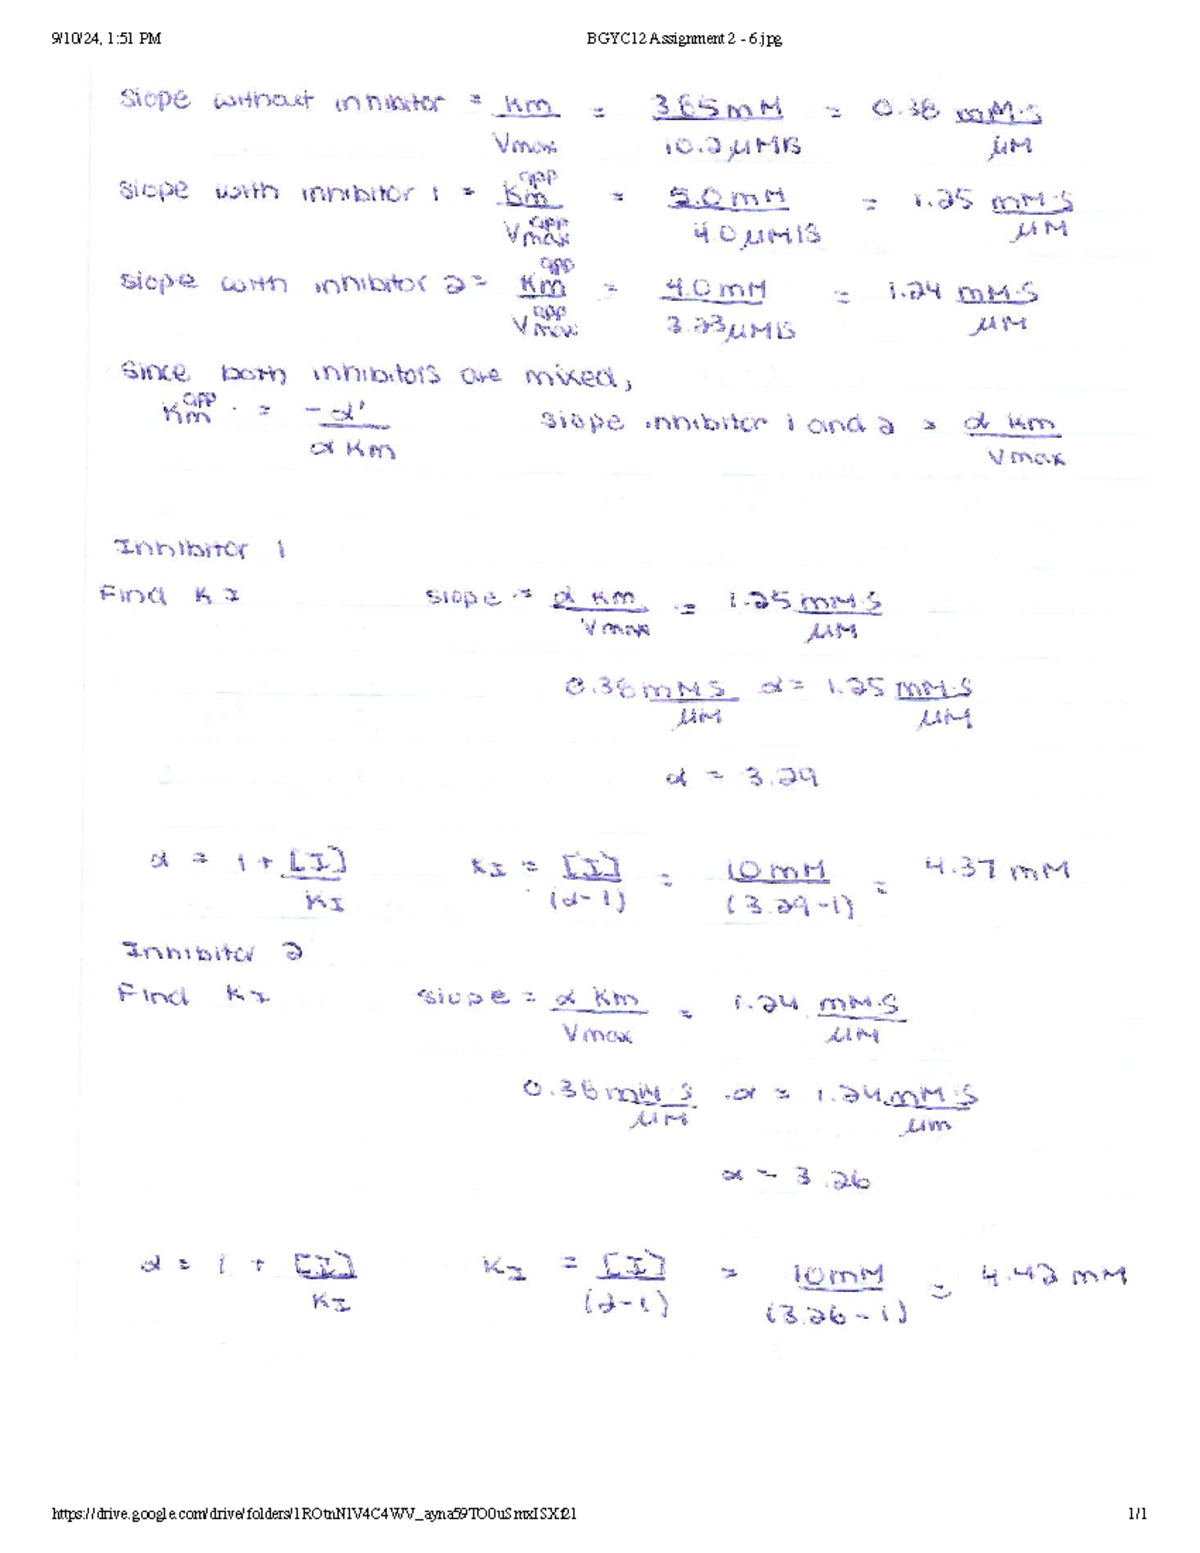 9/10/24, 1:51 PM BGYC12 Assignment 2 - 6.jpg
slope without inhibitor = Km / Vmax = 3.85 mM / 10.2 µM/s = 0.38 mM·s / µM
slope with inhibitor 1 = Km^app / Vmax^app = 5.0 mM / 4.0 µM/s = 1.25 mM·s / µM
slope with inhibitor 2 = Km^app / Vmax^app = 4.0 mM / 3.23 µM/s = 1.24 mM·s / µM
since both inhibitors are mixed,
Km^app = -α' / α Km slope inhibitor 1 and 2 = α Km / Vmax
Inhibitor 1
Find KI slope = α Km / Vmax = 1.25 mM·s / µM
0.38 mM·s / µM α = 1.25 mM·s / µM
α = 3.29
α = 1 + [I] / KI KI = [I] / (α-1) = 10 mM / (3.29-1) = 4.37 mM
Inhibitor 2
Find KI slope = α Km / Vmax = 1.24 mM·s / µM
0.38 mM·s / µM · α = 1.24 mM·s / µm
α = 3.26
α = 1 + [I] / KI KI = [I] / (α-1) = 10 mM / (3.26-1) = 4.42 mM
https://drive.google.com/drive/folders/1ROtnNlV4C4WV_ayna59TO0uSmxISXf21 1/1